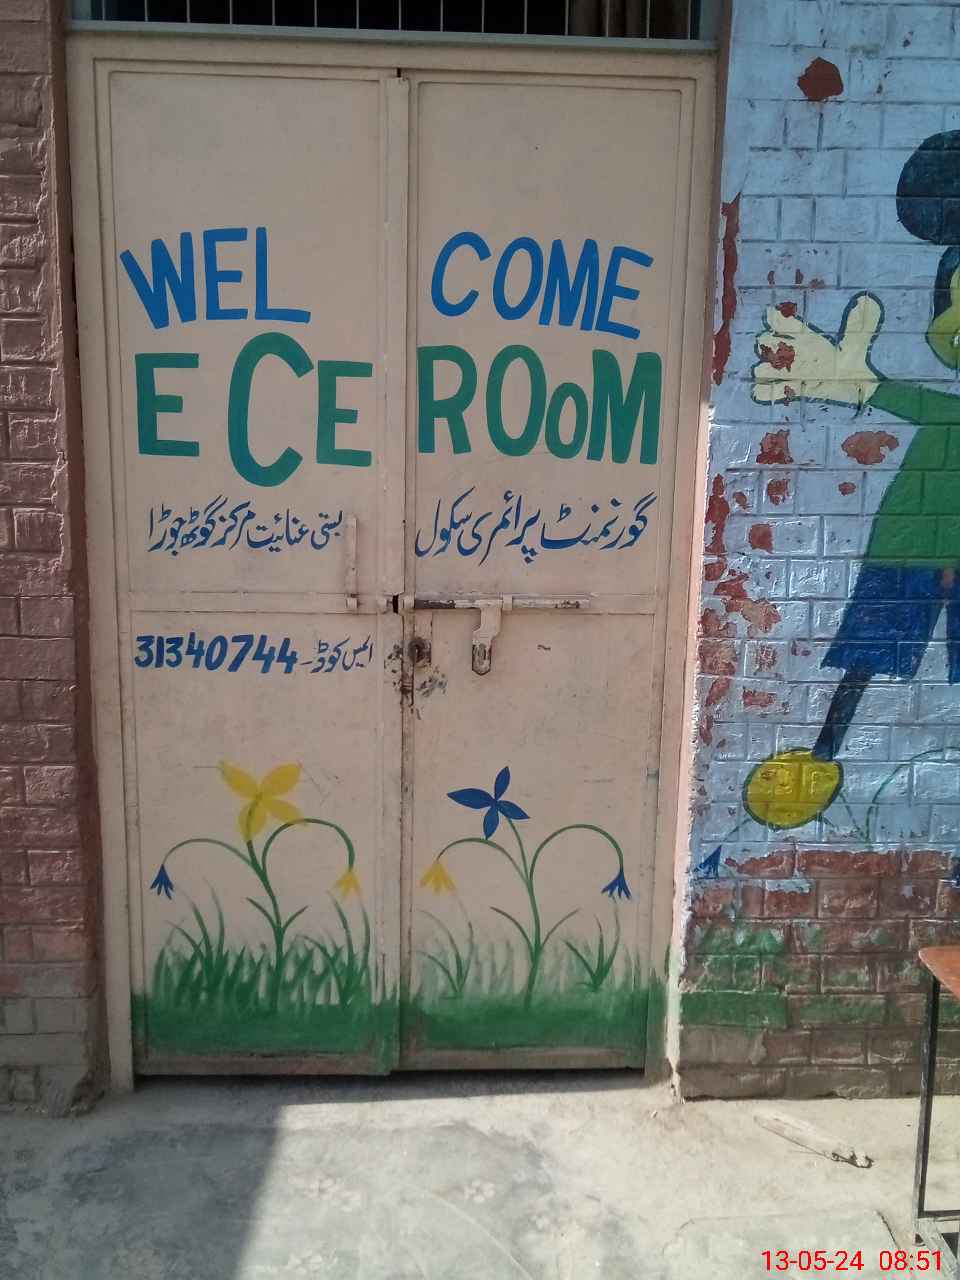 WEL COME
ECE ROOM
گورنمنٹ پرائمری سکول بستی عنائیت مرکز گوٹھ جوڑا
ایمس کوڈ۔ 31340744
13-05-24 08:51